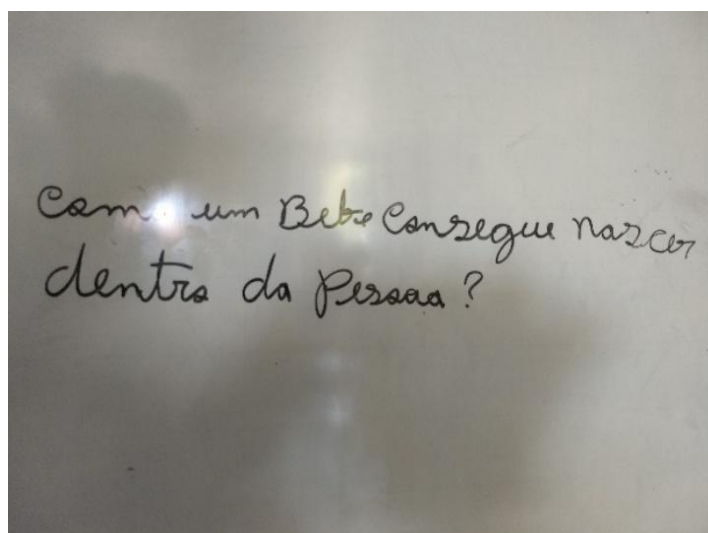 Como um Bebe Consegue nascer
dentro da Pessoa?